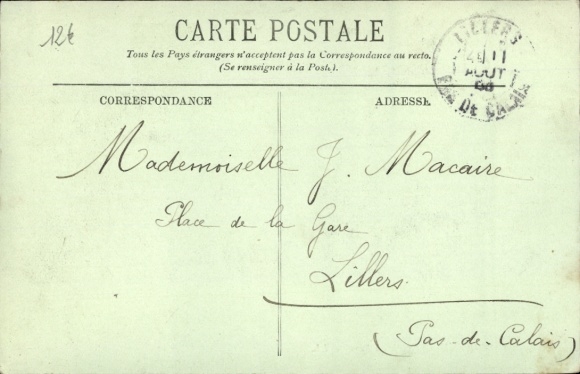 12€
CARTE POSTALE
Tous les Pays étrangers n'acceptent pas la Correspondance au recto.
(Se renseigner à la Poste).
LILLERS
11
AOUT
PAS DE CALAIS
CORRESPONDANCE
ADRESSE
Mademoiselle J. Macaire
Place de la Gare
Lillers
(Pas-de-Calais)